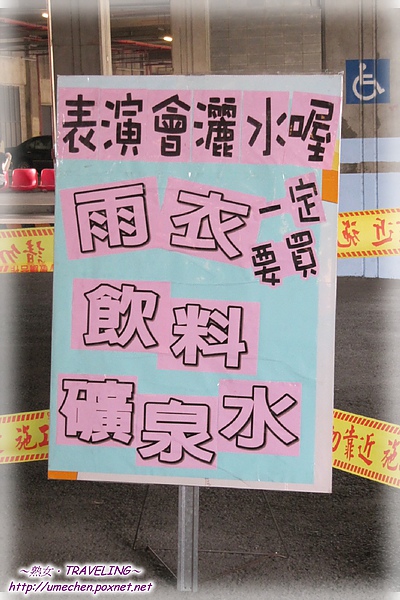 表演會灑水喔
雨衣一定要買
飲料
礦泉水
請勿
近 施
施工
勿靠近 施
～熟女·TRAVELING～
http://umechen.poxnet.net